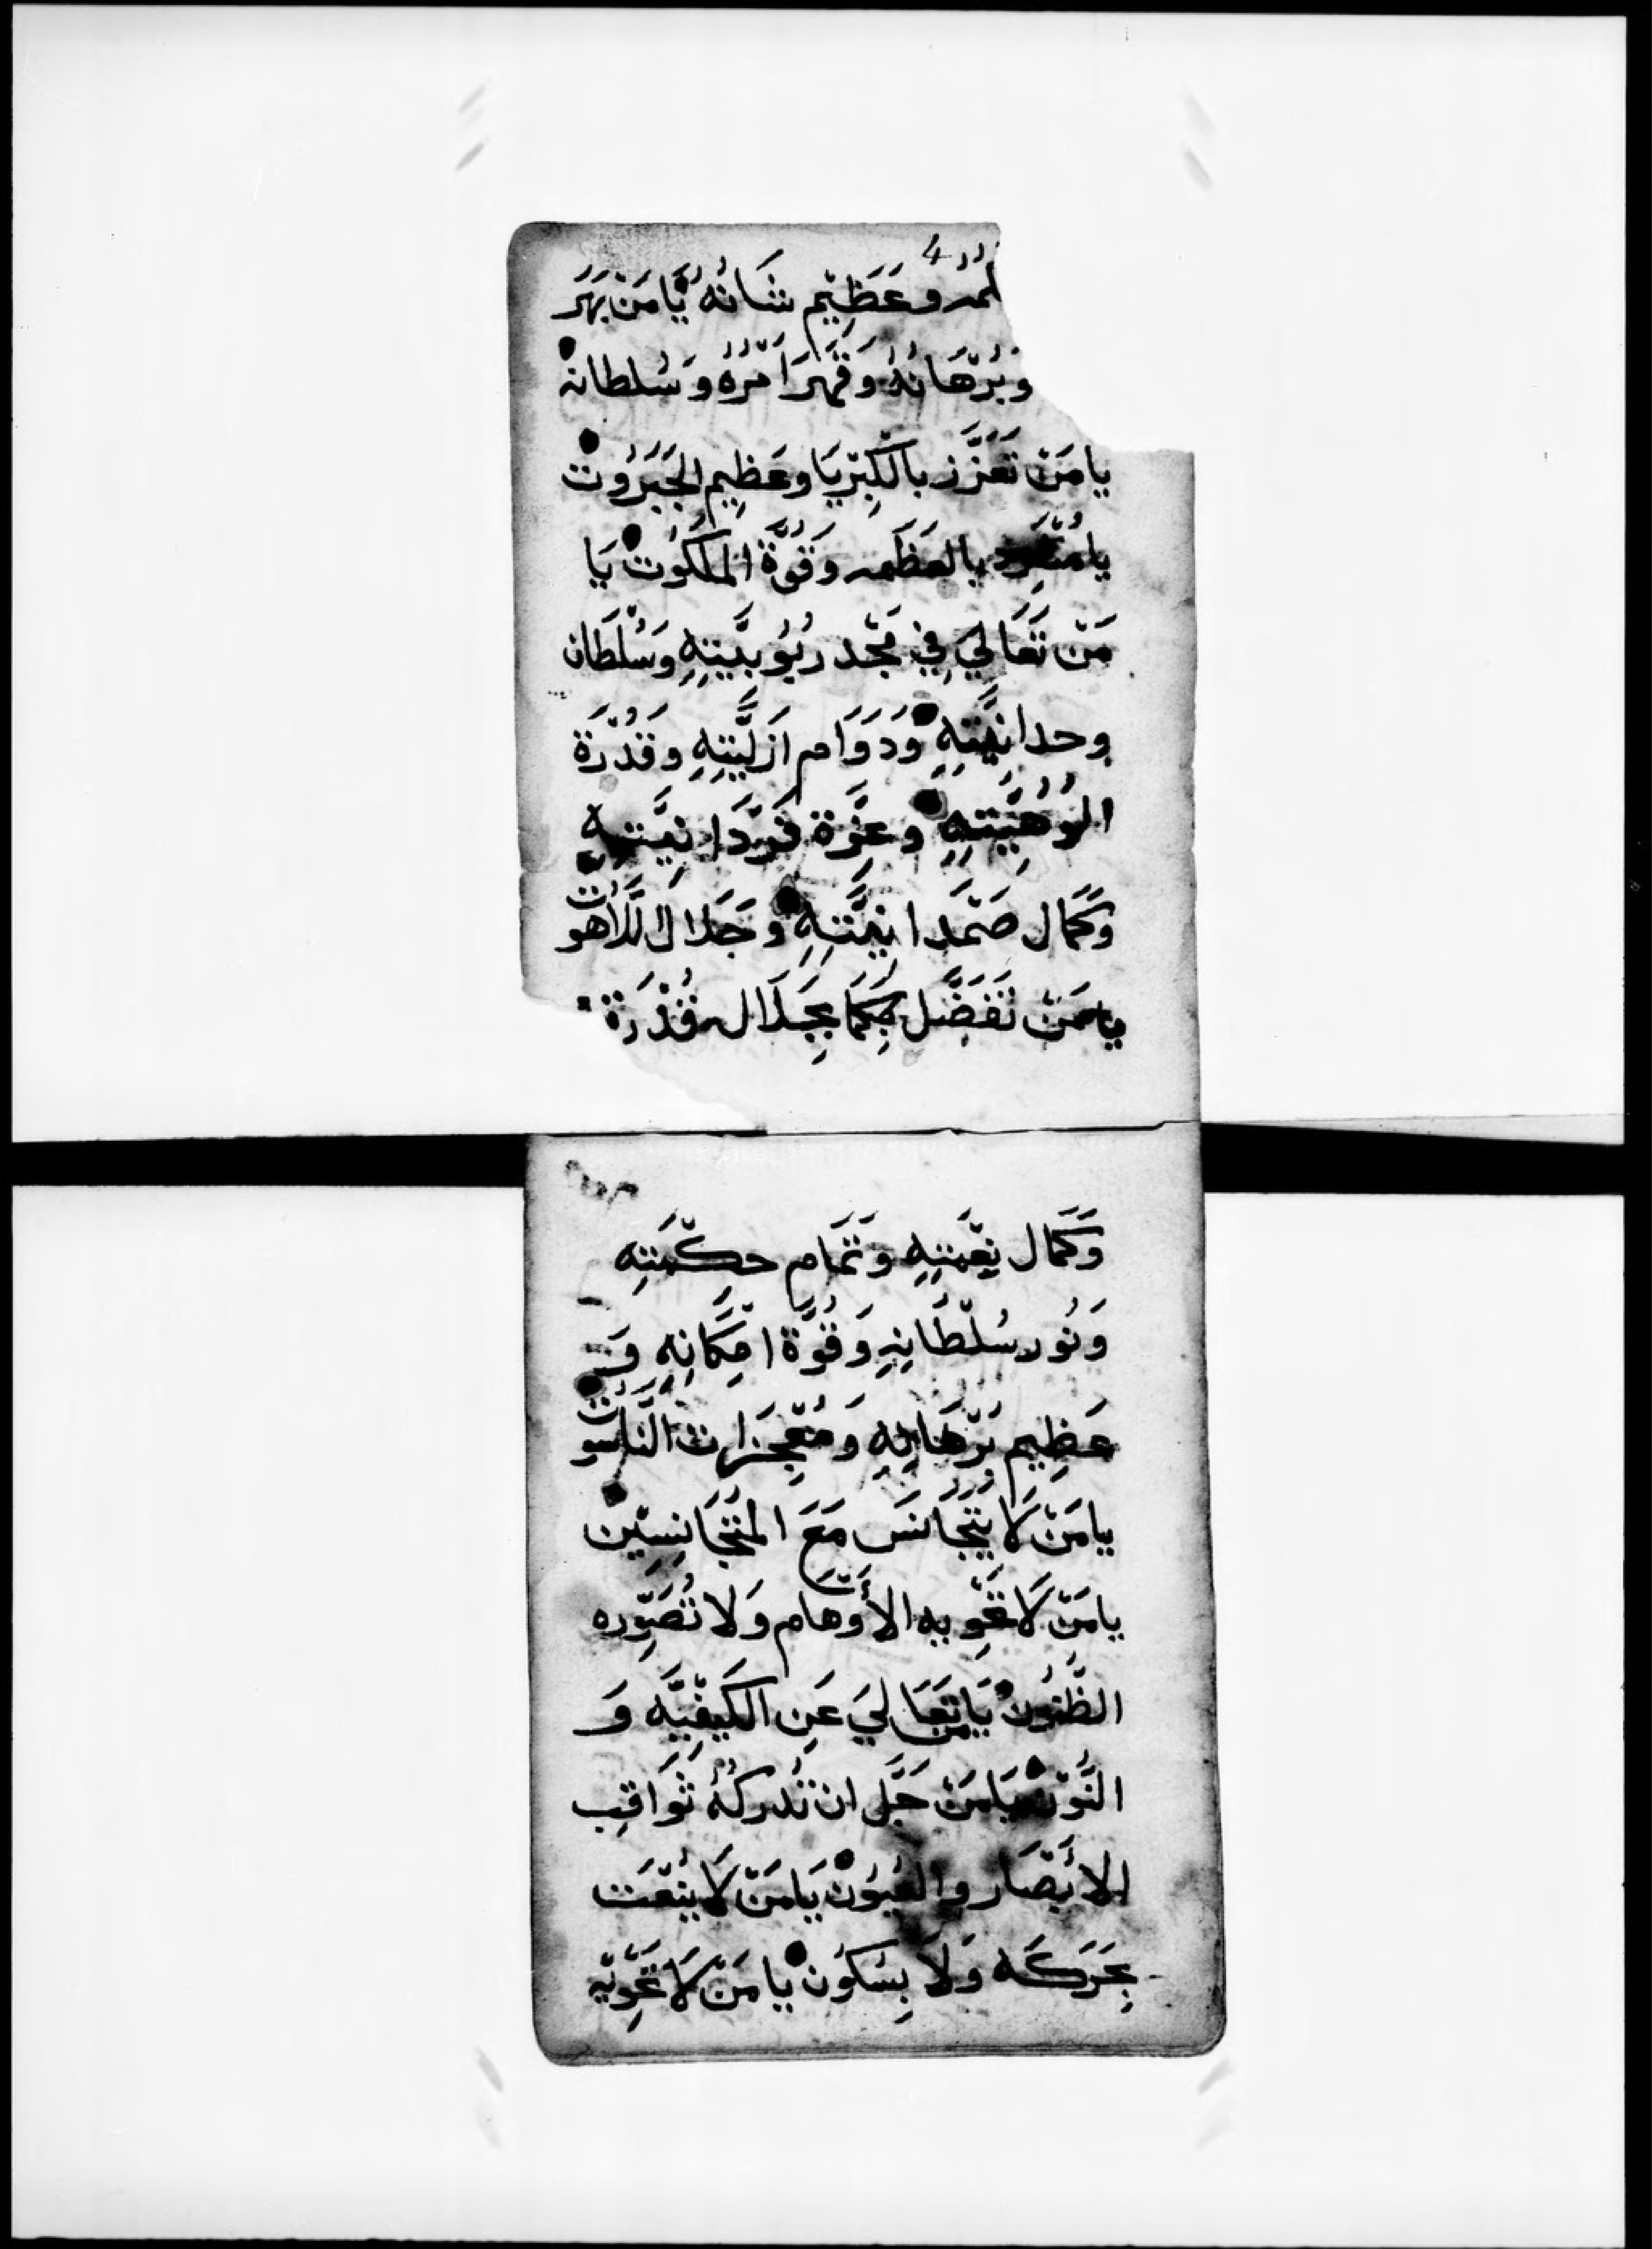 4
وعَظِيْم شَانُهُ يَامَنْ بَهَر
وَبُرْهَانُهُ وَقَهَرَ امْرُهُ وَسُلطانهْ
يامَنْ تَعَزَّز بالكِبْرِيَا وعَظِيم الجَبَرُوتْ
يامُنْفَرِد بالعَظَمه وَقُوَّة المَلَكُوتْ يَا
مَنْ تَعَالَي فِي مَجْد رُبُوبِيَّتِهِ وَسُلْطَان
وحدانِيَّتِهِ وَدَوَام ازليَّتِهِ وَقُدْرَة
الُوُهِيَّتِهِ وعِزَّة فَرْدَانِيَّتِهِ
وَكَمَال صَمَدانِيَّتِهِ وَجَلال اللَّاهُوت
يامَنْ تَفَضَّل بِجَلَال قُدْرَة
وَكَمَال نِعْمَتِهِ وَتَمَام حِكْمَتِه
وَنُور سُلْطَانِهِ وَقُوَّة امْكَانِهِ وَ
عَظِيم بُرْهَانِهِ وَمُعْجِزات النَّاسُوتْ
يامَنْ لَا يَتَجَانَس مَعَ المُتَجَانِسِيْن
يامَنْ لَا تَحْوِيه الأَوْهَام وَلا تُصَوِّره
الظُّنُونْ يَامَنْ تَعَالَيَ عَنِ الكَيْفِيَّه وَ
يَامَنْ جَلَّ ان تُدرِكُهُ ثَوَاقِب
الابْصَار والعُيُونْ يَامَنْ لَا يُنْعَت
بِحَرَكَه وَلَا بِسُكَونْ يامَنْ لَا تَحْوِيْهِ